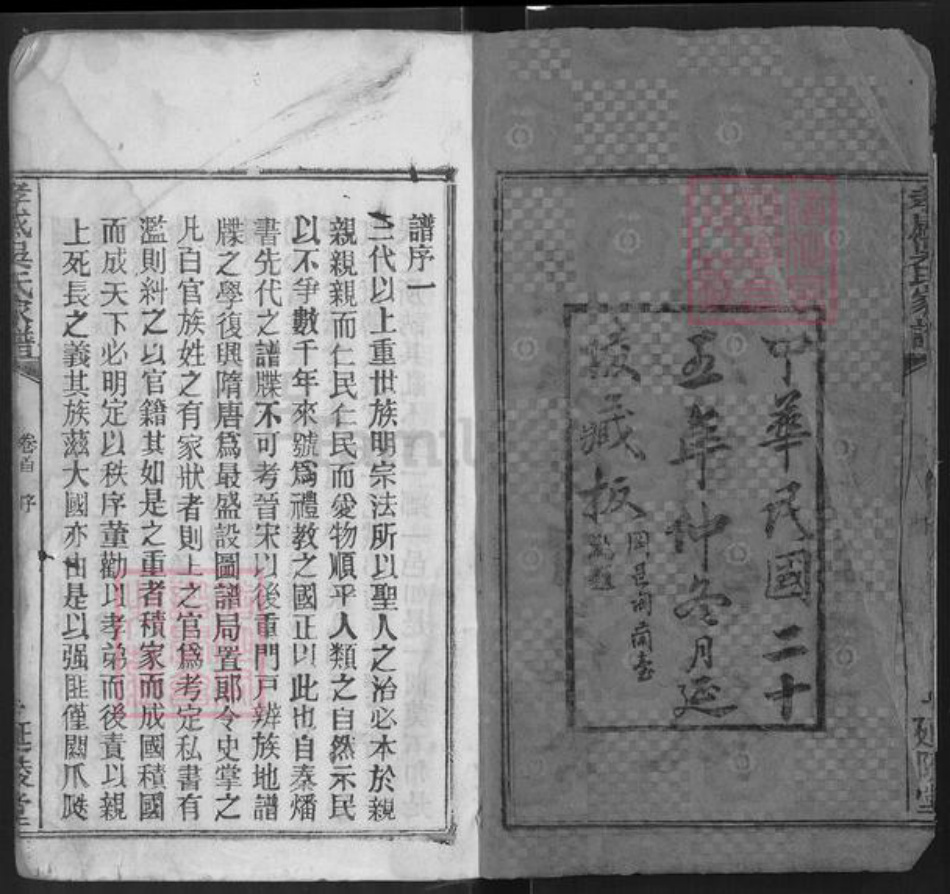 中華民國二十
五年仲冬月延
陵藏板
譜序一
三代以上重世族明宗法所以聖人之治必本於親
親親親而仁民仁民而愛物順乎人類之自然示民
以不爭數千年來號爲禮教之國正以此也自秦燔
書先代之譜牒不可考晉宋以後重門戸辨族地譜
牒之學復興隋唐爲最盛設圖譜局置郎令史掌之
凡百官族姓之有家狀者則上之官爲考定私書有
濫則糾之以官籍其如是之重者積家而成國積國
而成天下必明定以秩序董勸以孝弟而後責以親
上死長之義其族茲大國亦由是以强匪僅閥爪瓞
孝感吳氏家譜
卷首 序
延陵堂